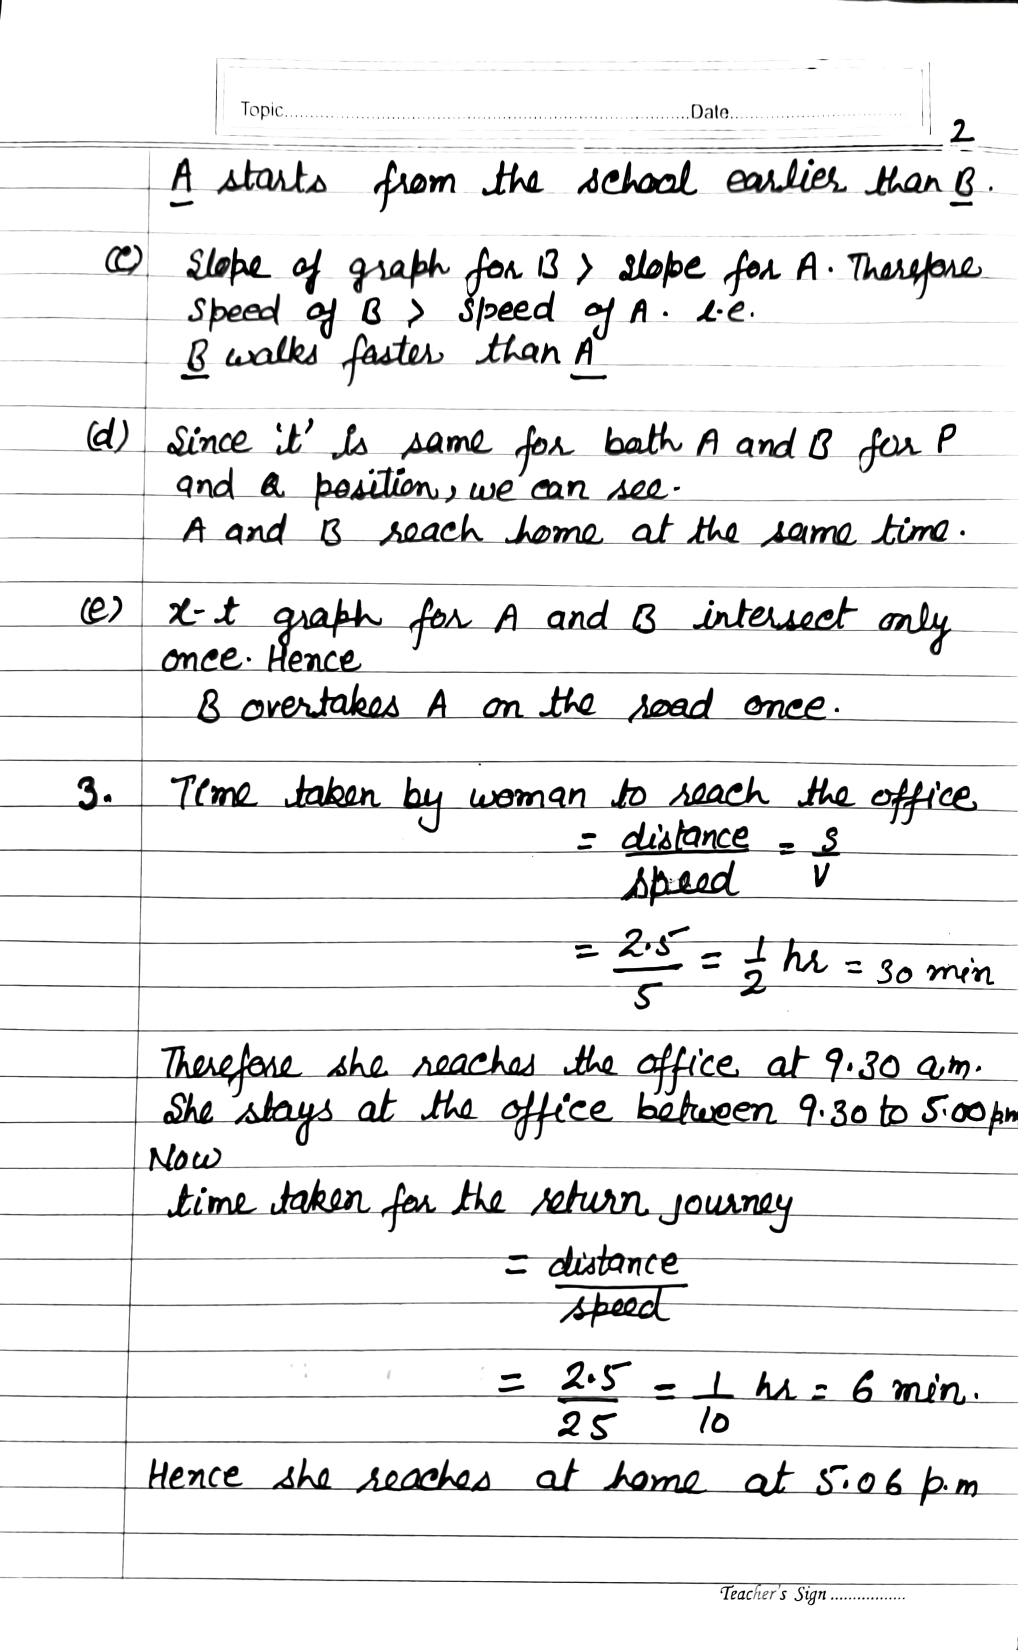 Topic..................Date..................
2
A starts from the school earlier than B.
(c) Slope of graph for B > slope for A. Therefore
Speed of B > Speed of A. i.e.
B walks faster than A
(d) Since 't' is same for both A and B for P
and Q position, we can see.
A and B reach home at the same time.
(e) x-t graph for A and B intersect only
once. Hence
B overtakes A on the road once.
3. Time taken by woman to reach the office
= distance/speed = S/V
= 2.5/5 = 1/2 hr = 30 min
Therefore she reaches the office at 9.30 a.m.
She stays at the office between 9.30 to 5.00 pm
Now
time taken for the return journey
= distance/speed
= 2.5/25 = 1/10 hr = 6 min.
Hence she reaches at home at 5.06 p.m
Teacher's Sign .................